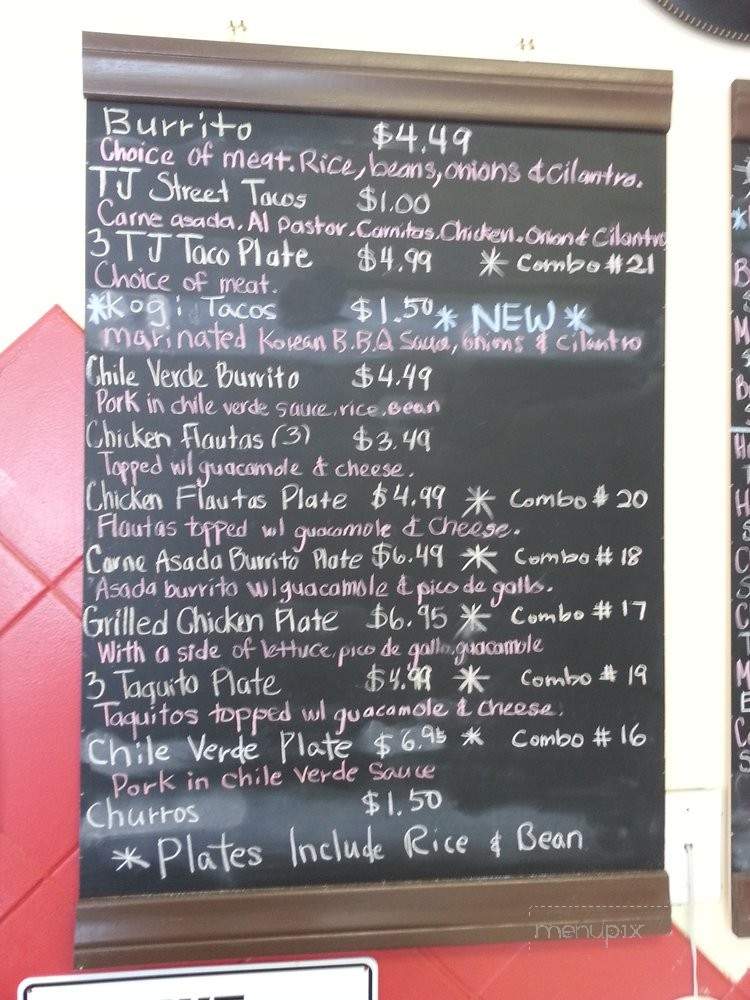 Burrito $4.49
Choice of meat. Rice, beans, onions & Cilantro.
TJ Street Tacos $1.00
Carne asada. Al Pastor. Carnitas. Chicken. Onion & Cilantro
3 TJ Taco Plate $4.99 * Combo #21
Choice of meat.
*Kogi Tacos $1.50 * NEW *
marinated Korean B.B.Q Sauce, onions & Cilantro
Chile Verde Burrito $4.49
Pork in chile verde sauce, rice, bean
Chicken Flautas (3) $3.49
Topped w/ guacamole & cheese.
Chicken Flautas Plate $4.99 * Combo #20
Flautas topped w/ guacamole & Cheese.
Carne Asada Burrito Plate $6.49 * Combo #18
Asada burrito w/ guacamole & pico de gallo.
Grilled Chicken Plate $6.95 * Combo #17
With a side of lettuce, pico de gallo, guacamole
3 Taquito Plate $4.99 * Combo #19
Taquitos topped w/ guacamole & cheese.
Chile Verde Plate $6.95 * Combo #16
Pork in chile verde Sauce
Churros $1.50
*Plates Include Rice & Bean
menupix